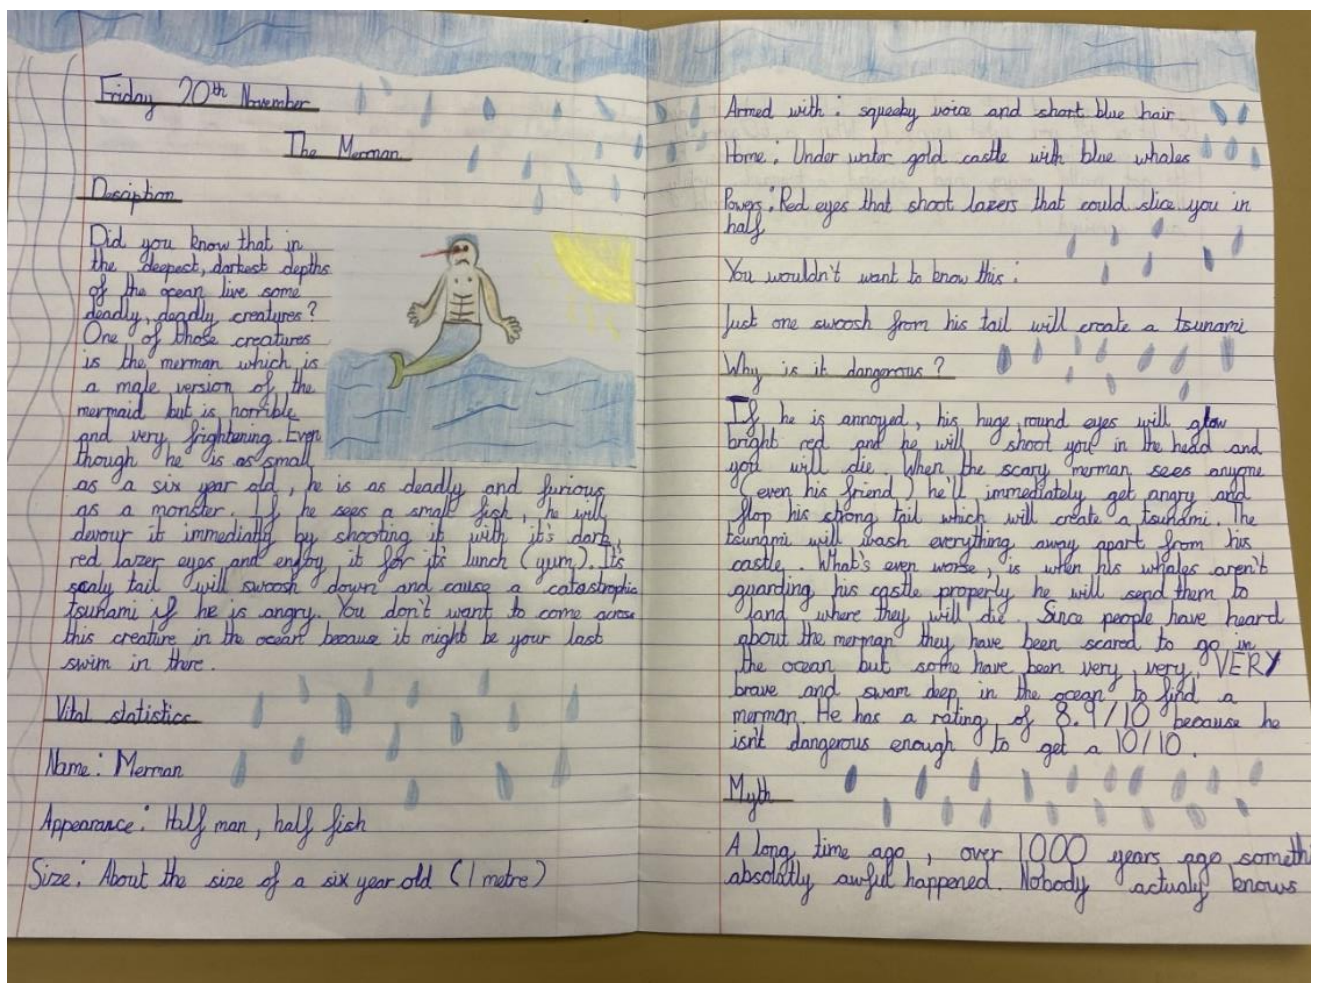 Friday 20th November
The Merman
Desciption
Did you know that in
the deepest, darkest depths
of the ocean live some
deadly, deadly creatures?
One of those creatures
is the merman which is
a male version of the
mermaid but is horrible
and very frightening. Even
though he is as small
as a six year old, he is as deadly and furious
as a monster. If he sees a small fish, he will
devour it immediatly by shooting it with it's dark,
red lazer eyes and enjoy it for it's lunch (yum). It's
scaly tail will swoosh down and cause a catastrophic
tsunami if he is angry. You don't want to come across
this creature in the ocean because it might be your last
swim in there.
Vital statistics
Name: Merman
Appearance: Half man, half fish
Size: About the size of a six year old (1 metre)
Armed with: squeeky voice and short blue hair
Home: Under water gold castle with blue whales
Powers: Red eyes that shoot lazers that could slice you in
half
You wouldn't want to know this:
Just one swoosh from his tail will create a tsunami
Why is it dangerous?
If he is annoyed, his huge, round eyes will glow
bright red and he will shoot you in the head and
you will die. When the scary merman sees anyone
(even his friend) he'll immediately get angry and
flop his strong tail which will create a tsunami. The
tsunami will wash everything away apart from his
castle. What's even worse, is when his whales aren't
guarding his castle properly he will send them to
land where they will die. Since people have heard
about the merman they have been scared to go in
the ocean but some have been very, very, VERY
brave and swam deep in the ocean to find a
merman. He has a rating of 8.9/10 because he
isn't dangerous enough to get a 10/10.
Myth
A long time ago, over 1000 years ago someth
absolatly awful happened. Nobody actualy knows